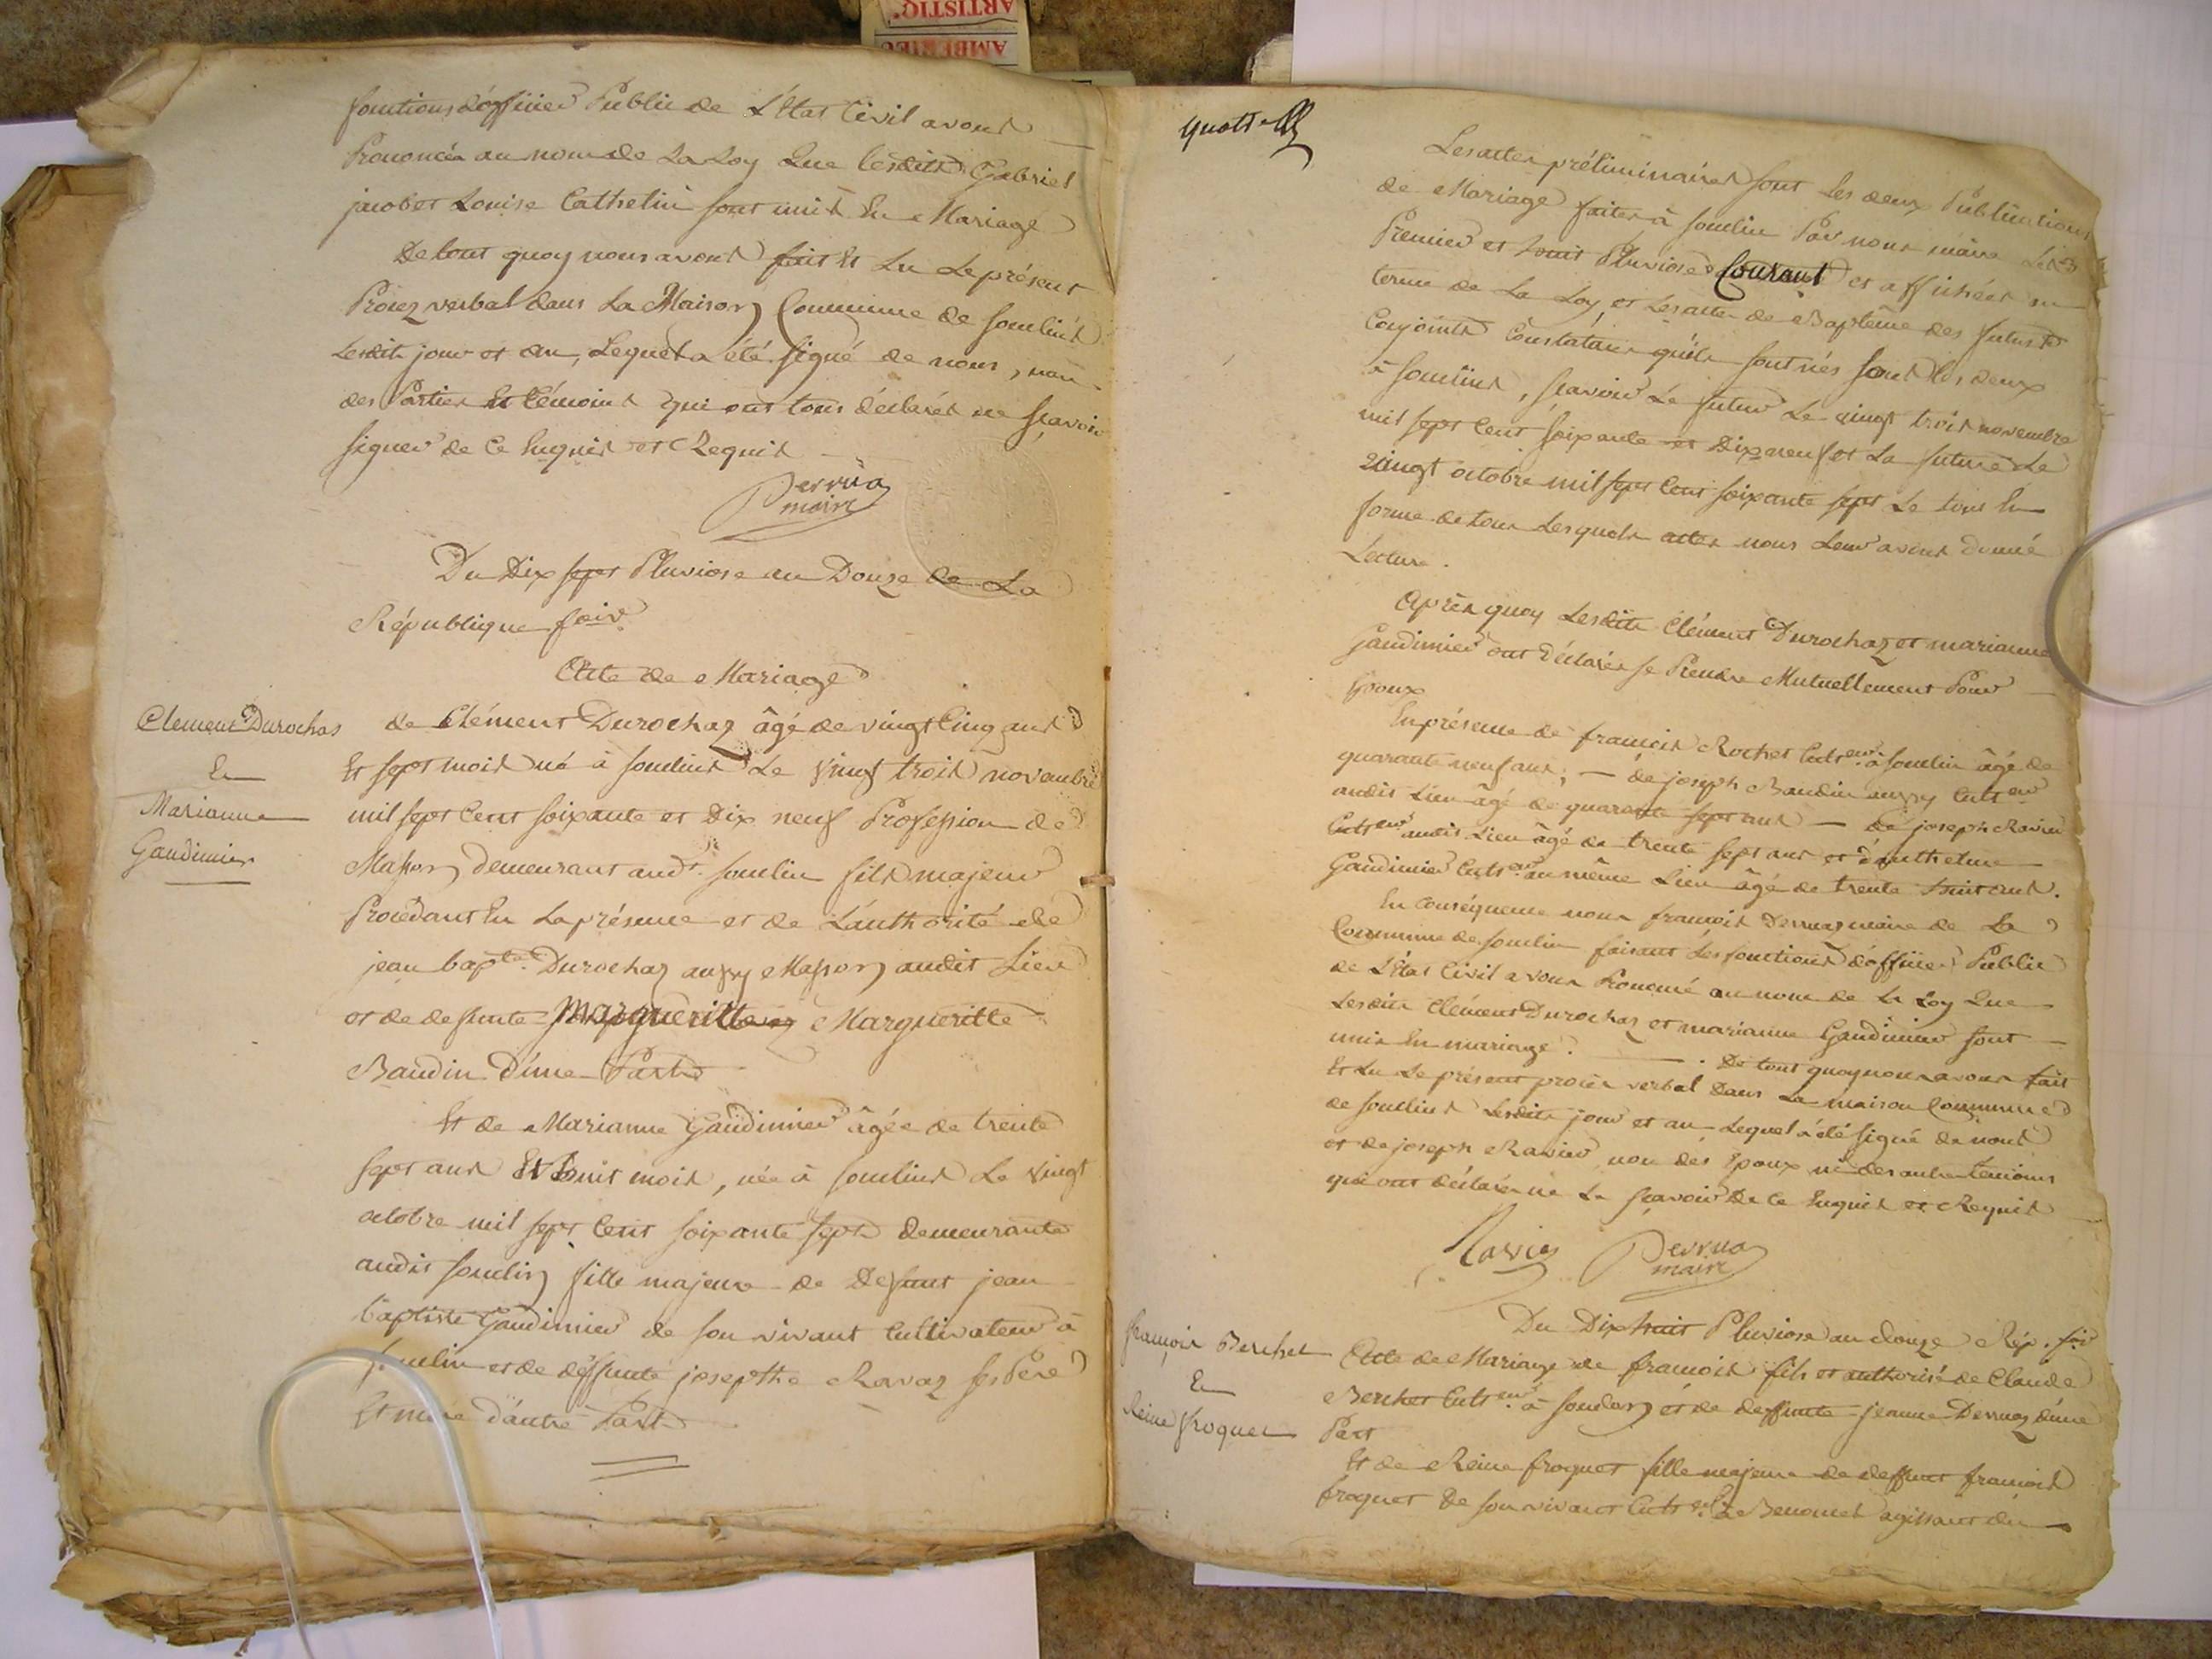 ARTISTIQ
AMBERIEU
fonctions d'officier Public de L'Etat Civil avons
Prononcés au nom de La Loy Que lesdits Gabriel
jacob et Louise Cathelin sont unis En Mariage
De tout quoy nous avons fait Et Lu Le présent
Procez verbal dans La Maison Commune de Souclin
Lesdits jour et an, Lequel a été signé de nous, non
des Parties Et témoins qui ont tous déclarés ne sçavoir
signer de Ce Enquis et Requis
Derruaz
maire
Du Dix sept Pluviose an Douze de La
République fse
Acte de Mariage
Clement Durochas
Et
Marianne
Gaudinier
de Clément Durochaz âgé de vingt Cinq ans
Et sept mois né à Souclin Le vingt trois novembre
mil sept Cent soixante et Dix neuf Profession de
Masson demeurant audt. Souclin fils majeur
Procédant En La présence et de L'authorité de
jean bapte. Durochaz aussy Masson audit Lieu
et de defunte Margueritte Margueritte
Baudin D'une Part
Et de Marianne Gaudinier âgée de trente
sept ans Et huit mois, née à Souclin Le Vingt
octobre mil sept Cent soixante sept demeurante
audit Souclin fille majeure de Defunt jean
baptiste Gaudinier de son vivant Cultivateur à
Souclin et de deffunte josepthe Ravaz ses Père
Et mère d'autre Part
Les actes préliminaires sont les deux Publications
de Mariage faites à Souclin Par nous maire Les
Premier et huit Pluviose Courant et affichées au
terme de La Loy, et Les actes de Baptême des futurs
Conjoints Constatans qu'ils sont nés tous les deux
à Souclin, sçavoir Le futur Le vingt trois novembre
mil sept Cent soixante et Dix neuf et La future Le
Vingt octobre mil sept Cent soixante sept Le tout En
forme de tous Lesquels actes nous Leur avons donné
Lecture.
Après quoy Lesdits Clément Durochaz et marianne
Gaudinier ont déclarés se Prendre Mutuellement Pour
Epoux
En présence de françois Rochet Cultr. à Souclin âgé de
quarante neuf ans; — de joseph Baudin aussy Cultr.
audit Lieu âgé de quarante sept ans — de joseph Ravier
Cultr. audit Lieu âgé de trente sept ans et d'anthelme
Gaudinier Cultr. au même Lieu âgé de trente huit ans.
En Conséquence nous françois Derruaz maire de La
Commune de Souclin faisant Les fonctions d'officier Public
de L'état Civil avons Prononcé au nom de La Loy Que
Lesdits Clément Durochaz et marianne Gaudinier sont
unis En mariage. — De tout quoy nous avons fait
Et Lu Le présent procès verbal Dans La maison Commune
de Souclin Lesdits jour et an Lequel a été signé de nous
et de joseph Ravier non des Epoux ni des autres témoins
qui ont déclarés ne Le sçavoir De Ce Enquis et Requis
Ravier Derruaz
maire
Du Dix huit Pluviose an douze Rép. fse
françois Berchet
Et
Reine froquet
Acte de Mariage de françois fils et authorisé de Claude
Berchet Cultr. à Souclin et de deffunte jeanne Derruaz d'une
Part
Et de Reine froquet fille majeure de deffunt françois
froquet De son vivant Cultr. à Benonces agissant du